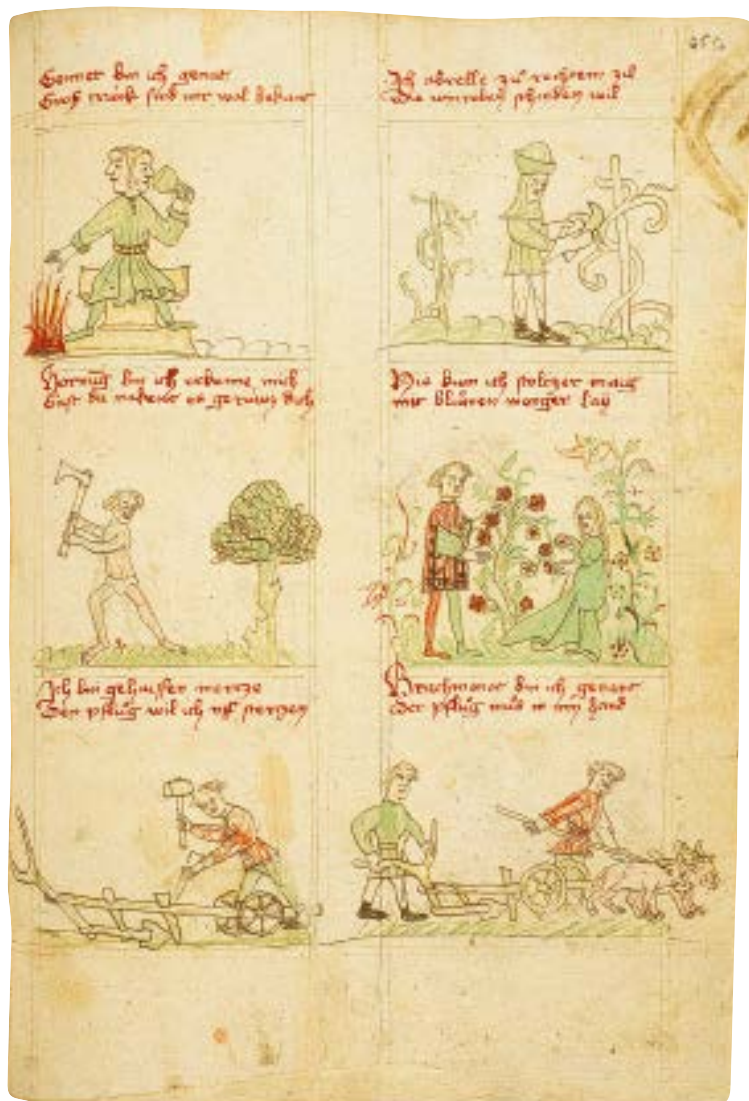 Genner bin ich genant
Groß trünk sind mir wol bekant
Hornūg bin ich erkenne mich
Gast du nakent es gerüwz dich
Ich bin geheissen mertze
Den pflůg wil ich uff stertzen
Ich abrelle zů rechtem zil
Die winreben schniden wil
Hie kum ich stoltzer maig
mit blůmen
Brachmonot bin ich genant
Der pflůg můs in min hand